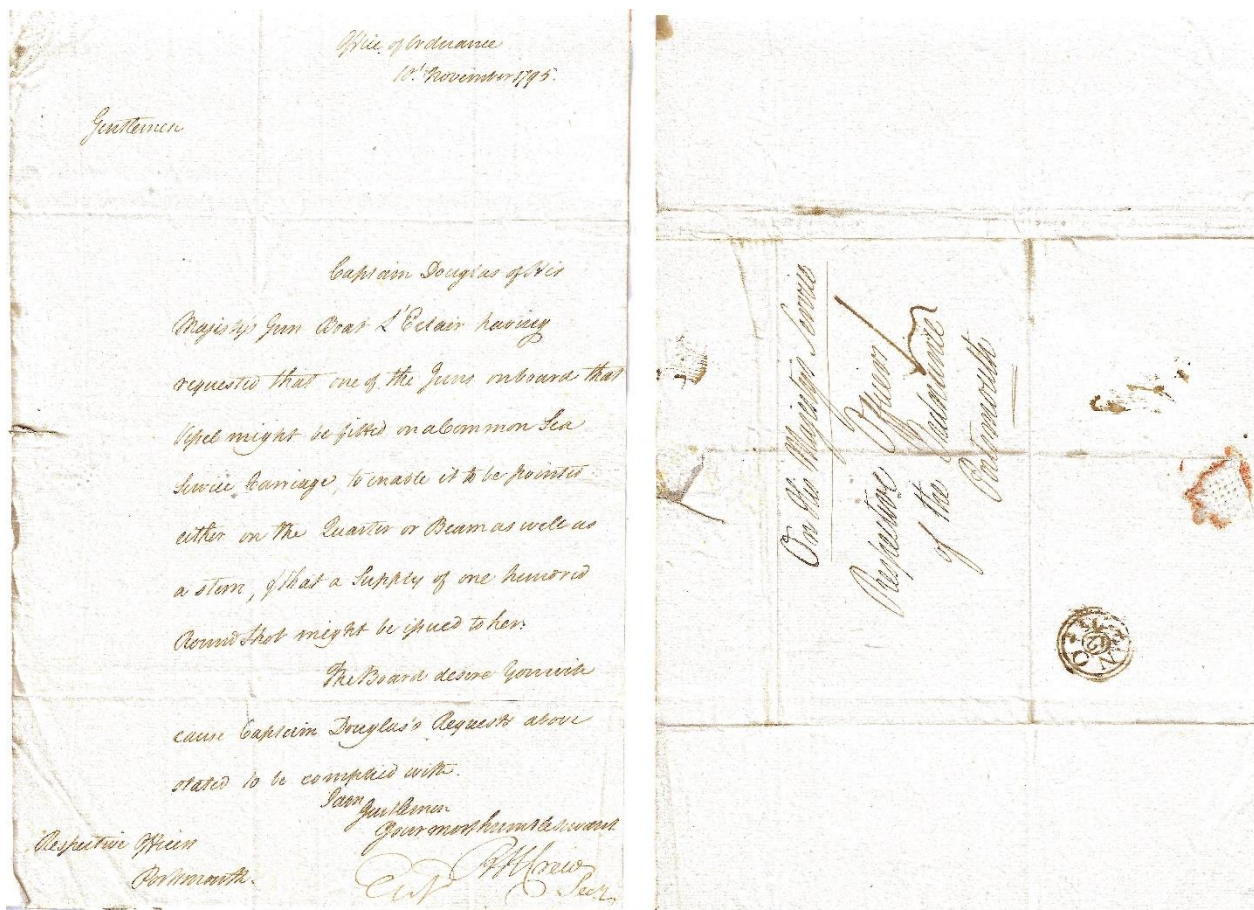 Office of Ordnance
10th November 1795.
Gentlemen
Captain Douglas of His
Majesty's Gun Boat L'Eclair having
requested that one of the Guns onboard that
Vessel might be fitted on a Common Sea
Service Carriage, to enable it to be pointed
either on the Quarter or Beam as well as
a stern, & that a Supply of one hundred
Round Shot might be issued to her.
The Board desire You will
cause Captain Douglas's Requests above
stated to be complied with.
I am
Gentlemen
Your most humble servant
Crew
Secy
Respective Officers
Portsmouth.
On His Majesty's Service
Respective Officers
of the Ordnance
Portsmouth